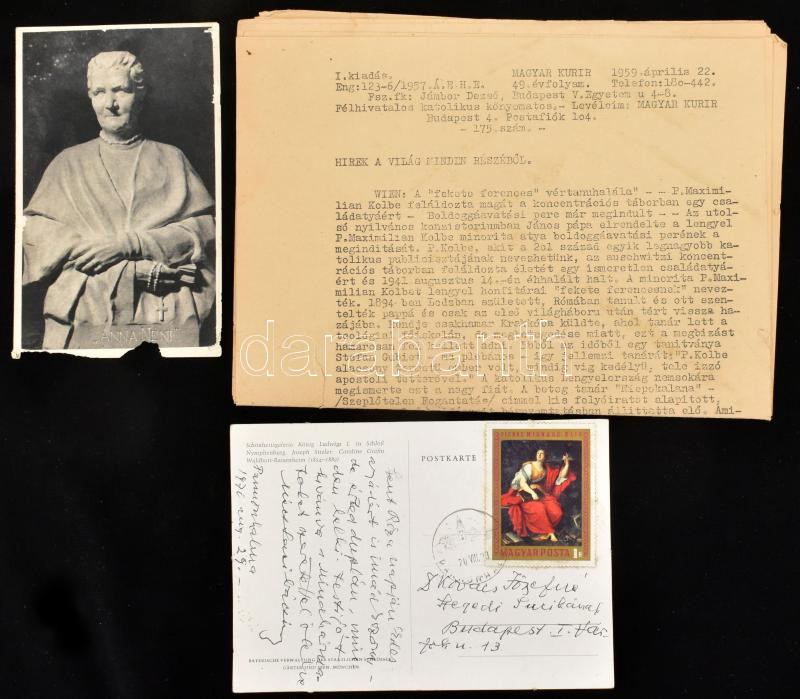 ANNA NÉNI
I.kiadás. MAGYAR KURIR 1959.április 22.
Eng:123-6/1957.Á.E H.E. 49.évfolyam. Telefon:180-442.
Fsz.fk: Jámbor Dezső, Budapest V.Egyetem u 4-8.
Félhivatalos katolikus kőnyomatos.- Levélcím: MAGYAR KURIR
Budapest 4. Postafiók 104.
- 175.szám. -
HIREK A VILÁG MINDEN RÉSZÉBŐL.
WIEN: A "fekete ferences" vértanuhalála" -- P.Maximi-
lian Kolbe feláldozta magát a koncentrációs táborban egy csa-
ládatyáért - Boldoggáavatási pere már megindult -- Az utol-
só nyilvános konzisztoriumban János pápa elrendelte a lengyel
P.Maximilian Kolbe minorita atya boldoggáavatási perének a
meginditását. P.Kolbe, akit a 20. század egyik legnagyobb ka-
tolikus publicisztájának nevezhetünk, az auschwitzi koncent-
rációs táborban feláldozta életét egy ismeretlen családatyá-
ért és 1941 augusztus 14.-én éhhalált halt. A minorita P.Max-
imilian Kolbet lengyel honfitárai "fekete ferencesnek" nevez-
ték. 1894-ben Lodzban született, Rómában tanult és ott szen-
telték pappá és csak az első világháboru után tért vissza ha-
zájába. Rendje csakhamar Krakkóba küldte, ahol tanár lett a
teológiai főiskolán, de megbetegedése miatt, ezt a megbizást
hamarosan fel kellett adni. Ebből az időből egy tanitványa
Stefan plébános - igy jellemzi tanárát:"P.Kolbe
alacsony termetü ember volt, mindig vig kedélyű, tele izzó
apostoli tetterővel." A katolikus Lengyelország nemsokára
megismerte ezt a nagy fiát. A beteg tanár "Niepokalana" -
/Szeplőtelen Fogantatás/ cimmel kis folyóiratot alapitott,
állittatta elő. Ámi-
darabanth
Schönheitsgalerie König Ludwigs I. in Schloß
Nymphenburg. Joseph Stieler: Caroline Gräfin
Waldbott-Bassenheim (1824-1889)
Pannonhalma
1976 aug. 29.-
Szent Róza napján édes
is imádkozom
de érted duplán, min-
den lelki testi jót
kivánva s mindhárma-
tokat szeretettel ölelve
bácsi
BAYERISCHE VERWALTUNG DER STAATLICHEN SCHLÖSSER
GÄRTEN UND SEEN, MÜNCHEN
POSTKARTE
PIERRE MIGNARD
MAGYAR POSTA 1
Kovács Józsefné
Szegedi
Budapest I.
u. 13